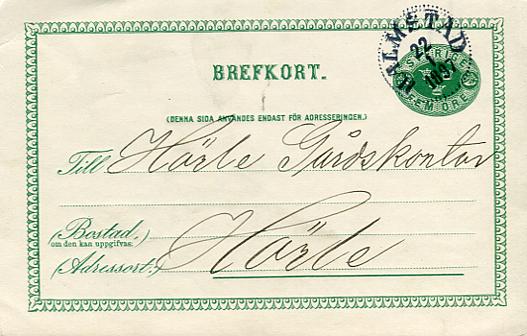 HALMSTAD
22
1
1897
SVERIGE
FEM ÖRE
BREFKORT.
(DENNA SIDA ANVÄNDES ENDAST FÖR ADRESSERINGEN.)
Till Hörle Gårdskontor
(Bostad,)
om den kan uppgifvas:
(Adressort:) Hörle